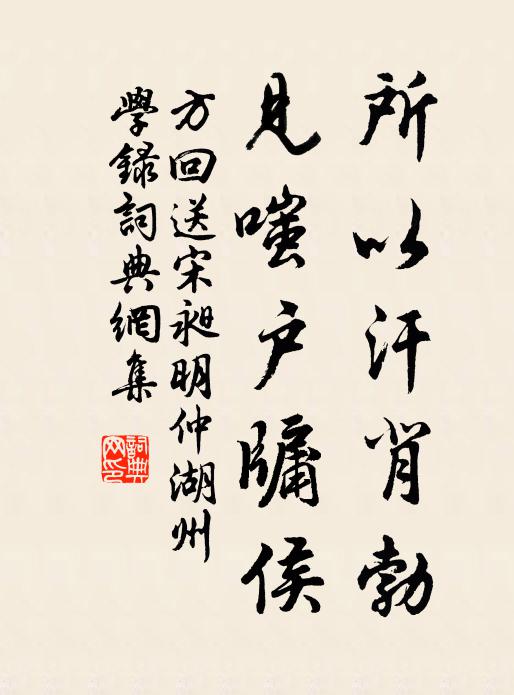 所以汗背勃
見嗤户牖侯
方回送宋昶明仲湖州
學録詞典網集
詞典
网印